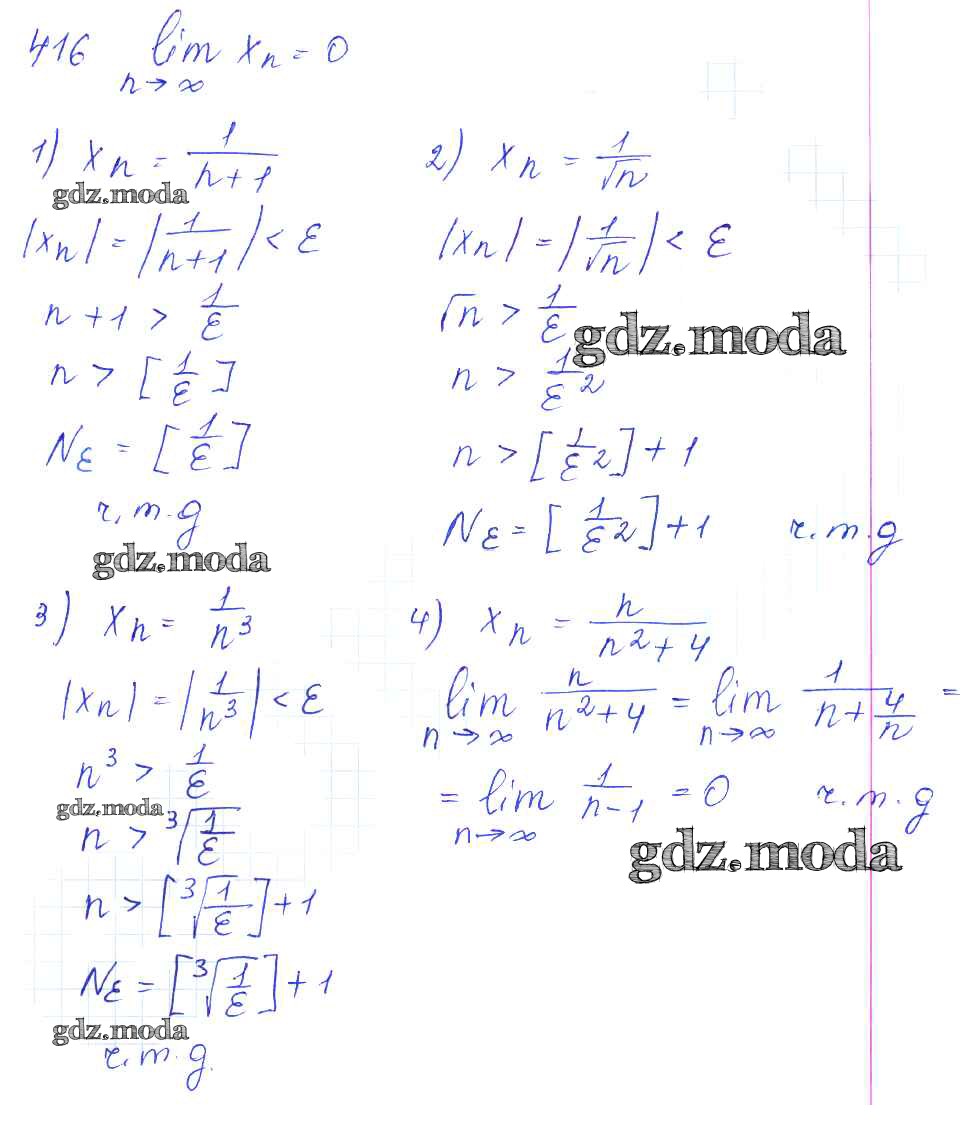 416 lim xₙ = 0
n → ∞
1) xₙ = 1/(n+1)
gdz.moda
|xₙ| = |1/(n+1)| < ε
n + 1 > 1/ε
n > [1/ε]
Nε = [1/ε]
ч.т.д
gdz.moda
2) xₙ = 1/√n
|xₙ| = |1/√n| < ε
√n > 1/ε
gdz.moda
n > 1/ε²
n > [1/ε²] + 1
Nε = [1/ε²] + 1 ч.т.д
3) xₙ = 1/n³
|xₙ| = |1/n³| < ε
n³ > 1/ε
gdz.moda
n > ³√(1/ε)
n > [³√(1/ε)] + 1
Nε = [³√(1/ε)] + 1
gdz.moda
ч.т.д.
4) xₙ = n/(n²+4)
lim n/(n²+4) = lim 1/(n+4/n) =
n→∞ n→∞
= lim 1/(n-1) = 0 ч.т.д
n→∞
gdz.moda